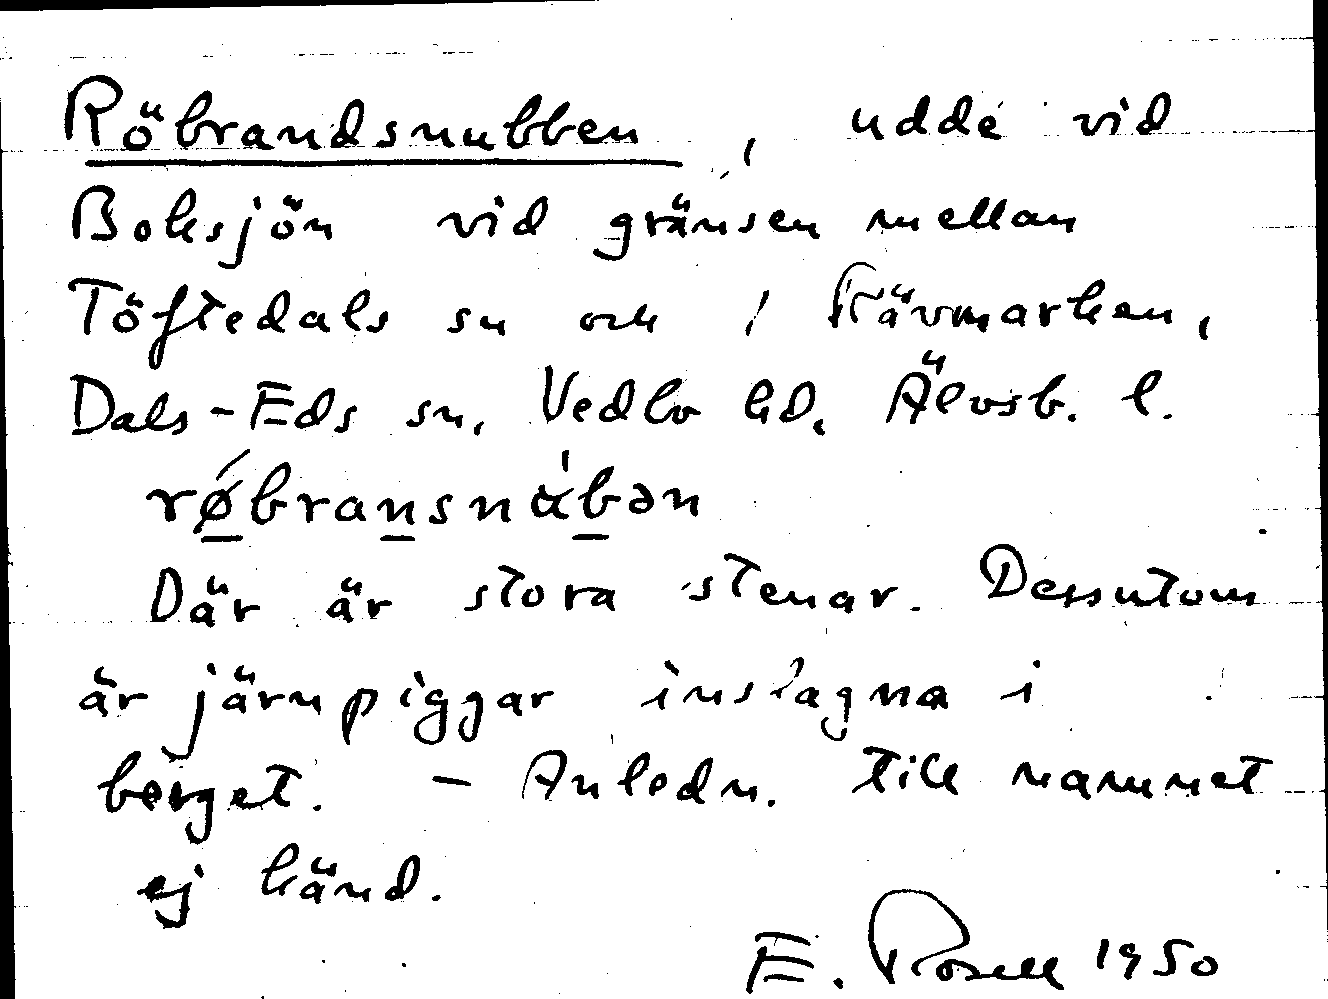 Röbrandsnubben, udde vid
Boksjön vid gränsen mellan
Töftedals sn och / Rävmarken,
Dals-Eds sn, Vedbo hd, Älvsb. l.
rǿbransnúbən
Där är stora stenar. Dessutom
är järnpiggar inslagna i
berget. – Anledn. till namnet
ej känd.
E. Rosell 1950